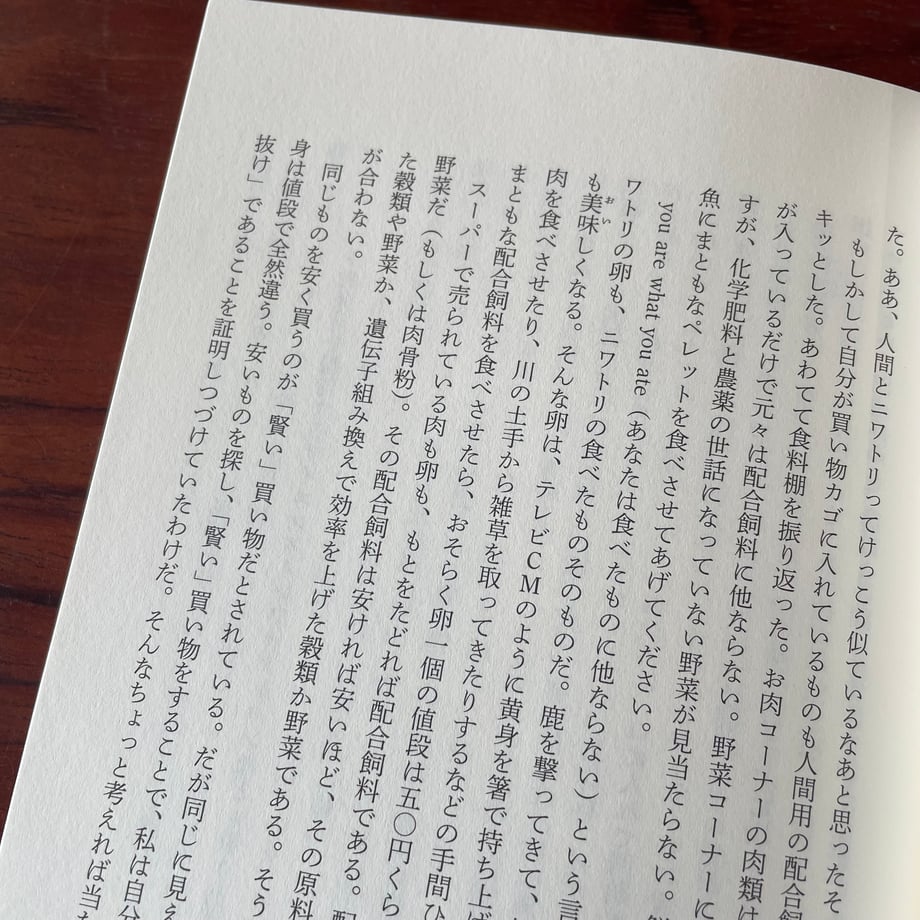 た。ああ、人間とニワトリってけっこう似ているなあと思ったそ
もしかして自分が買い物カゴに入れているものも人間用の配合飼
キッとした。あわてて食料棚を振り返った。お肉コーナーの肉類は
が入っているだけで元々は配合飼料に他ならない。野菜コーナーに
すが、化学肥料と農薬の世話になっていない野菜が見当たらない。
魚にまともなペレットを食べさせてあげてください。
you are what you ate（あなたは食べたものに他ならない）という言
ワトリの卵も、ニワトリの食べたものそのものだ。鹿を撃ってきて、
も美味しくなる。そんな卵は、テレビCMのように黄身を箸で持ち上げ
おい
肉を食べさせたり、川の土手から雑草を取ってきたりするなどの手間ひ
まともな配合飼料を食べさせたら、おそらく卵一個の値段は五〇円くら
スーパーで売られている肉も卵も、もとをたどれば配合飼料である。配
野菜だ（もしくは肉骨粉）。その配合飼料は安ければ安いほど、その原料
た穀類や野菜か、遺伝子組み換えで効率を上げた穀類か野菜である。そう
が合わない。
同じものを安く買うのが「賢い」買い物だとされている。だが同じに見え
身は値段で全然違う。安いものを探し、「賢い」買い物をすることで、私は自分
抜け」であることを証明しつづけていたわけだ。そんなちょっと考えれば当た